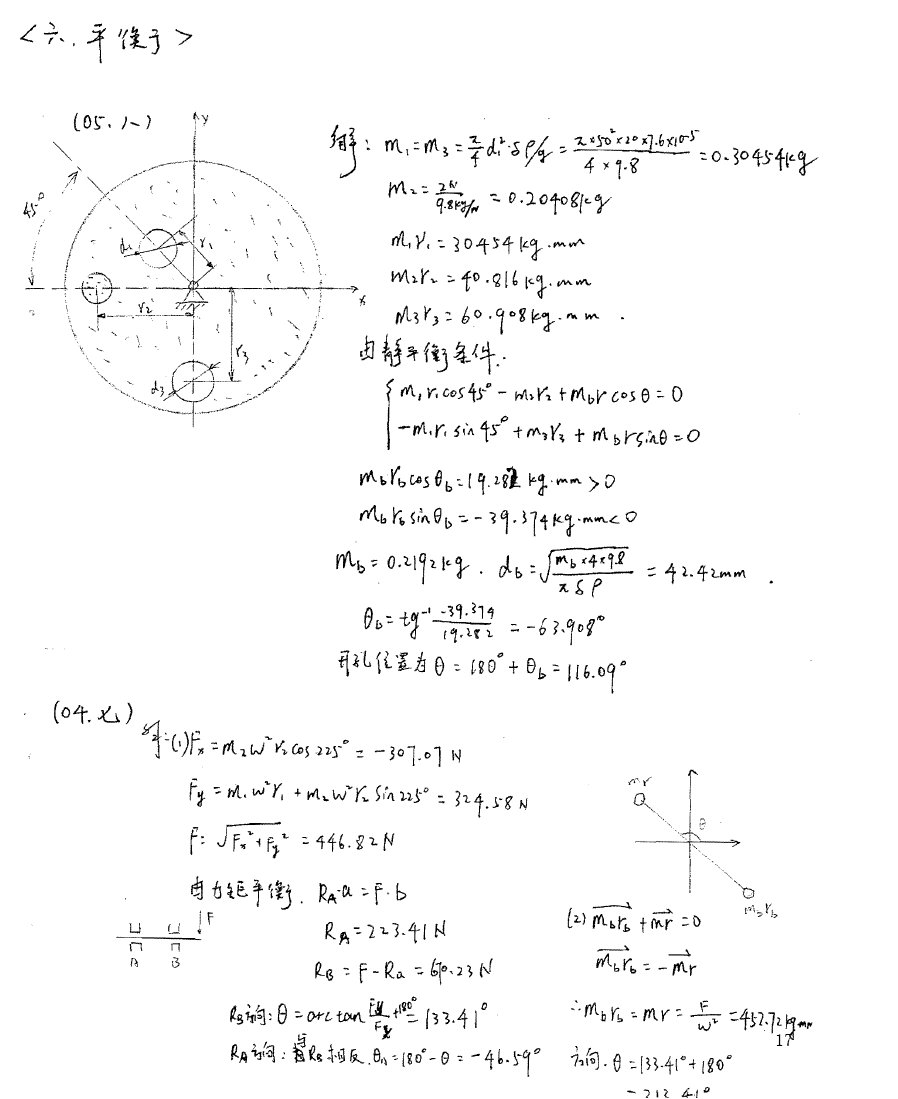 <六、平衡>
(05.八)
y
x
45°
d₁
r₁
r₂
r₃
d₃
解: m₁=m₃=π/4 d₁²·δρ/g=π×50²×20×7.6×10⁻⁵/4×9.8=0.30454kg
m₂=2N/9.8kg/N=0.20408kg
m₁r₁=30454kg.mm
m₂r₂=40.816kg.mm
m₃r₃=60.908kg.mm.
由静平衡条件:
m₁r₁cos45°-m₂r₂+mbrcosθ=0
-m₁r₁sin45°+m₃r₃+mbrsinθ=0
mbrbcosθb=19.282kg·mm>0
mbrbsinθb=-39.374kg·mm<0
mb=0.2192kg. db=√(mb×4×98/πδρ)=42.42mm.
θb=tg⁻¹ -39.379/19.282=-63.908°
开孔位置为θ=180°+θb=116.09°
(04.七)
解:(1)Fx=m₂ω²r₂cos225°=-307.07N
Fy=m₁ω²r₁+m₂ω²r₂Sin225°=324.58N
F:√(Fx²+Fy²)=446.82N
由力矩平衡. RA·a=F·b
RA=223.41N
RB=F-Ra=670.23N
RB方向:θ=arctan Fy/Fx+180°=133.41°
RA方向:与RB相反.θA=180°-θ=-46.59°
F
A
B
mr
θ
mbrb
(2)mbrb+mr=0
mbrb=-mr
∴mbrb=mr=F/ω²=452.72kgmm
17
方向.θ=133.41°+180°
=313.41°